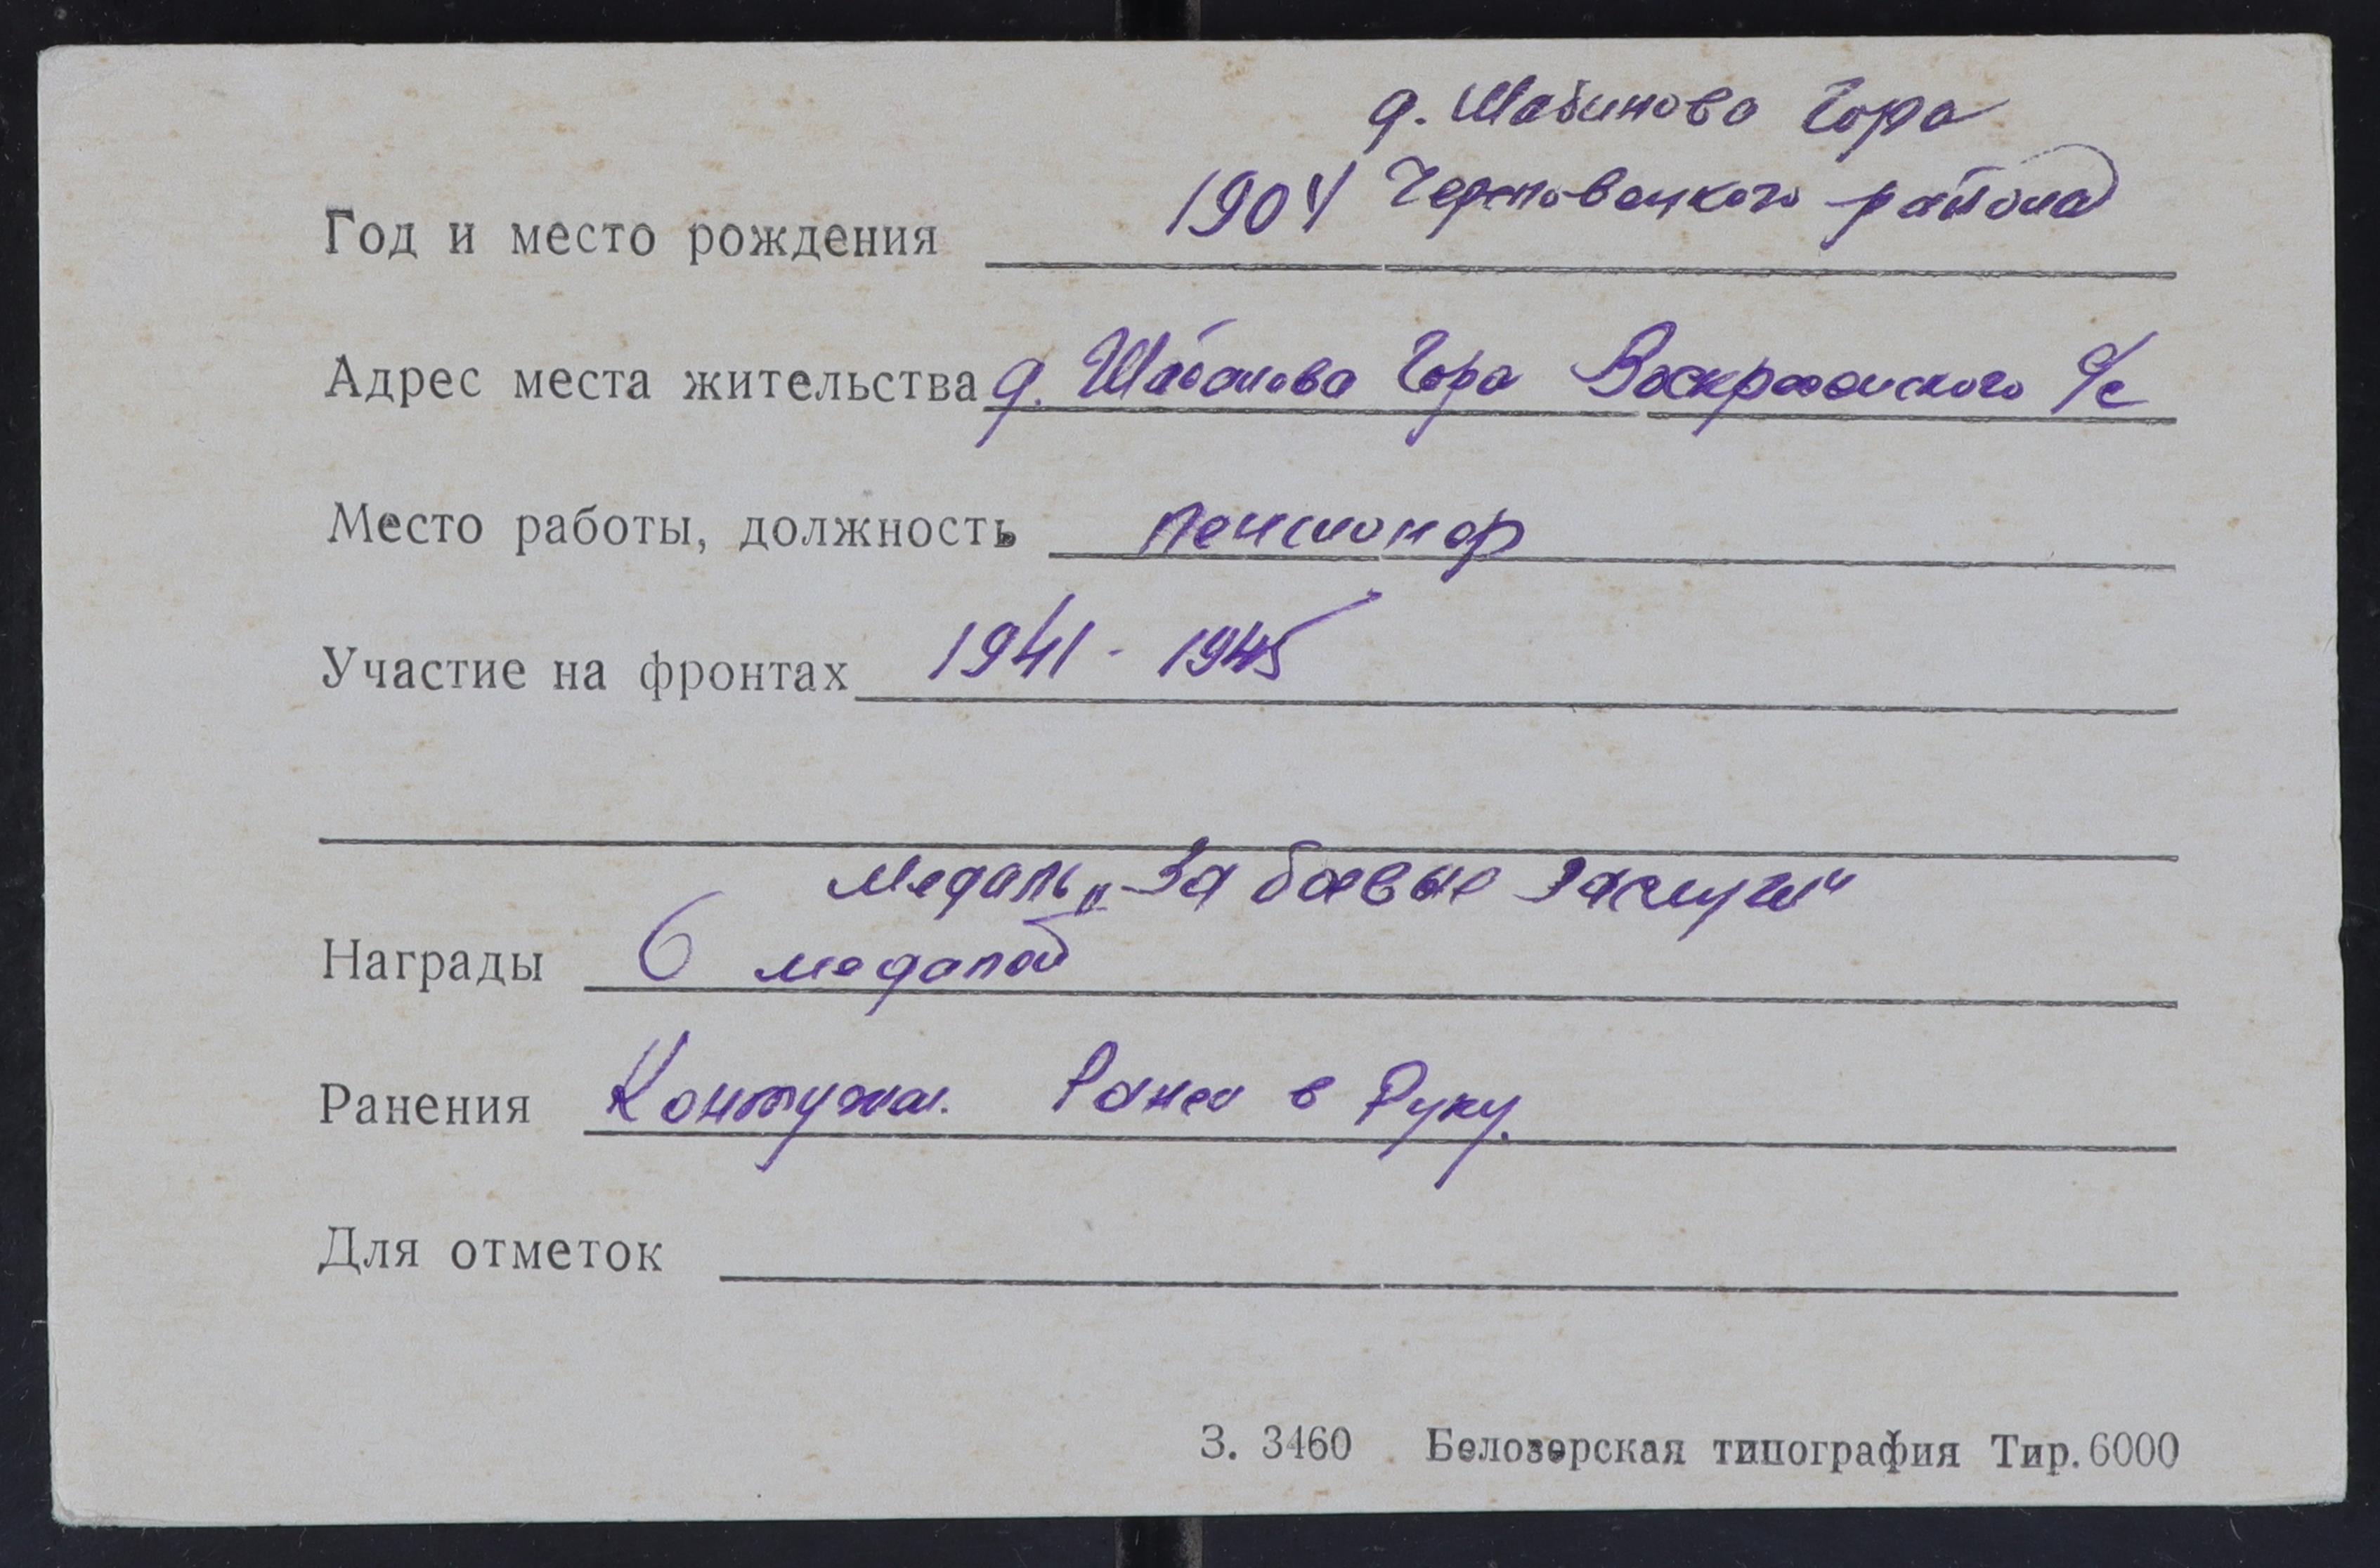 д. Шабанова Гора
Год и место рождения 1904 Череповецкого района
Адрес места жительства д. Шабанова Гора Воскресенского с/с
Место работы, должность пенсионер
Участие на фронтах 1941 - 1945
Медаль „За боевые заслуги“
Награды 6 медалей
Ранения Контужен. Ранен в Руку.
Для отметок
З. 3460 Белозерская типография Тир. 6000